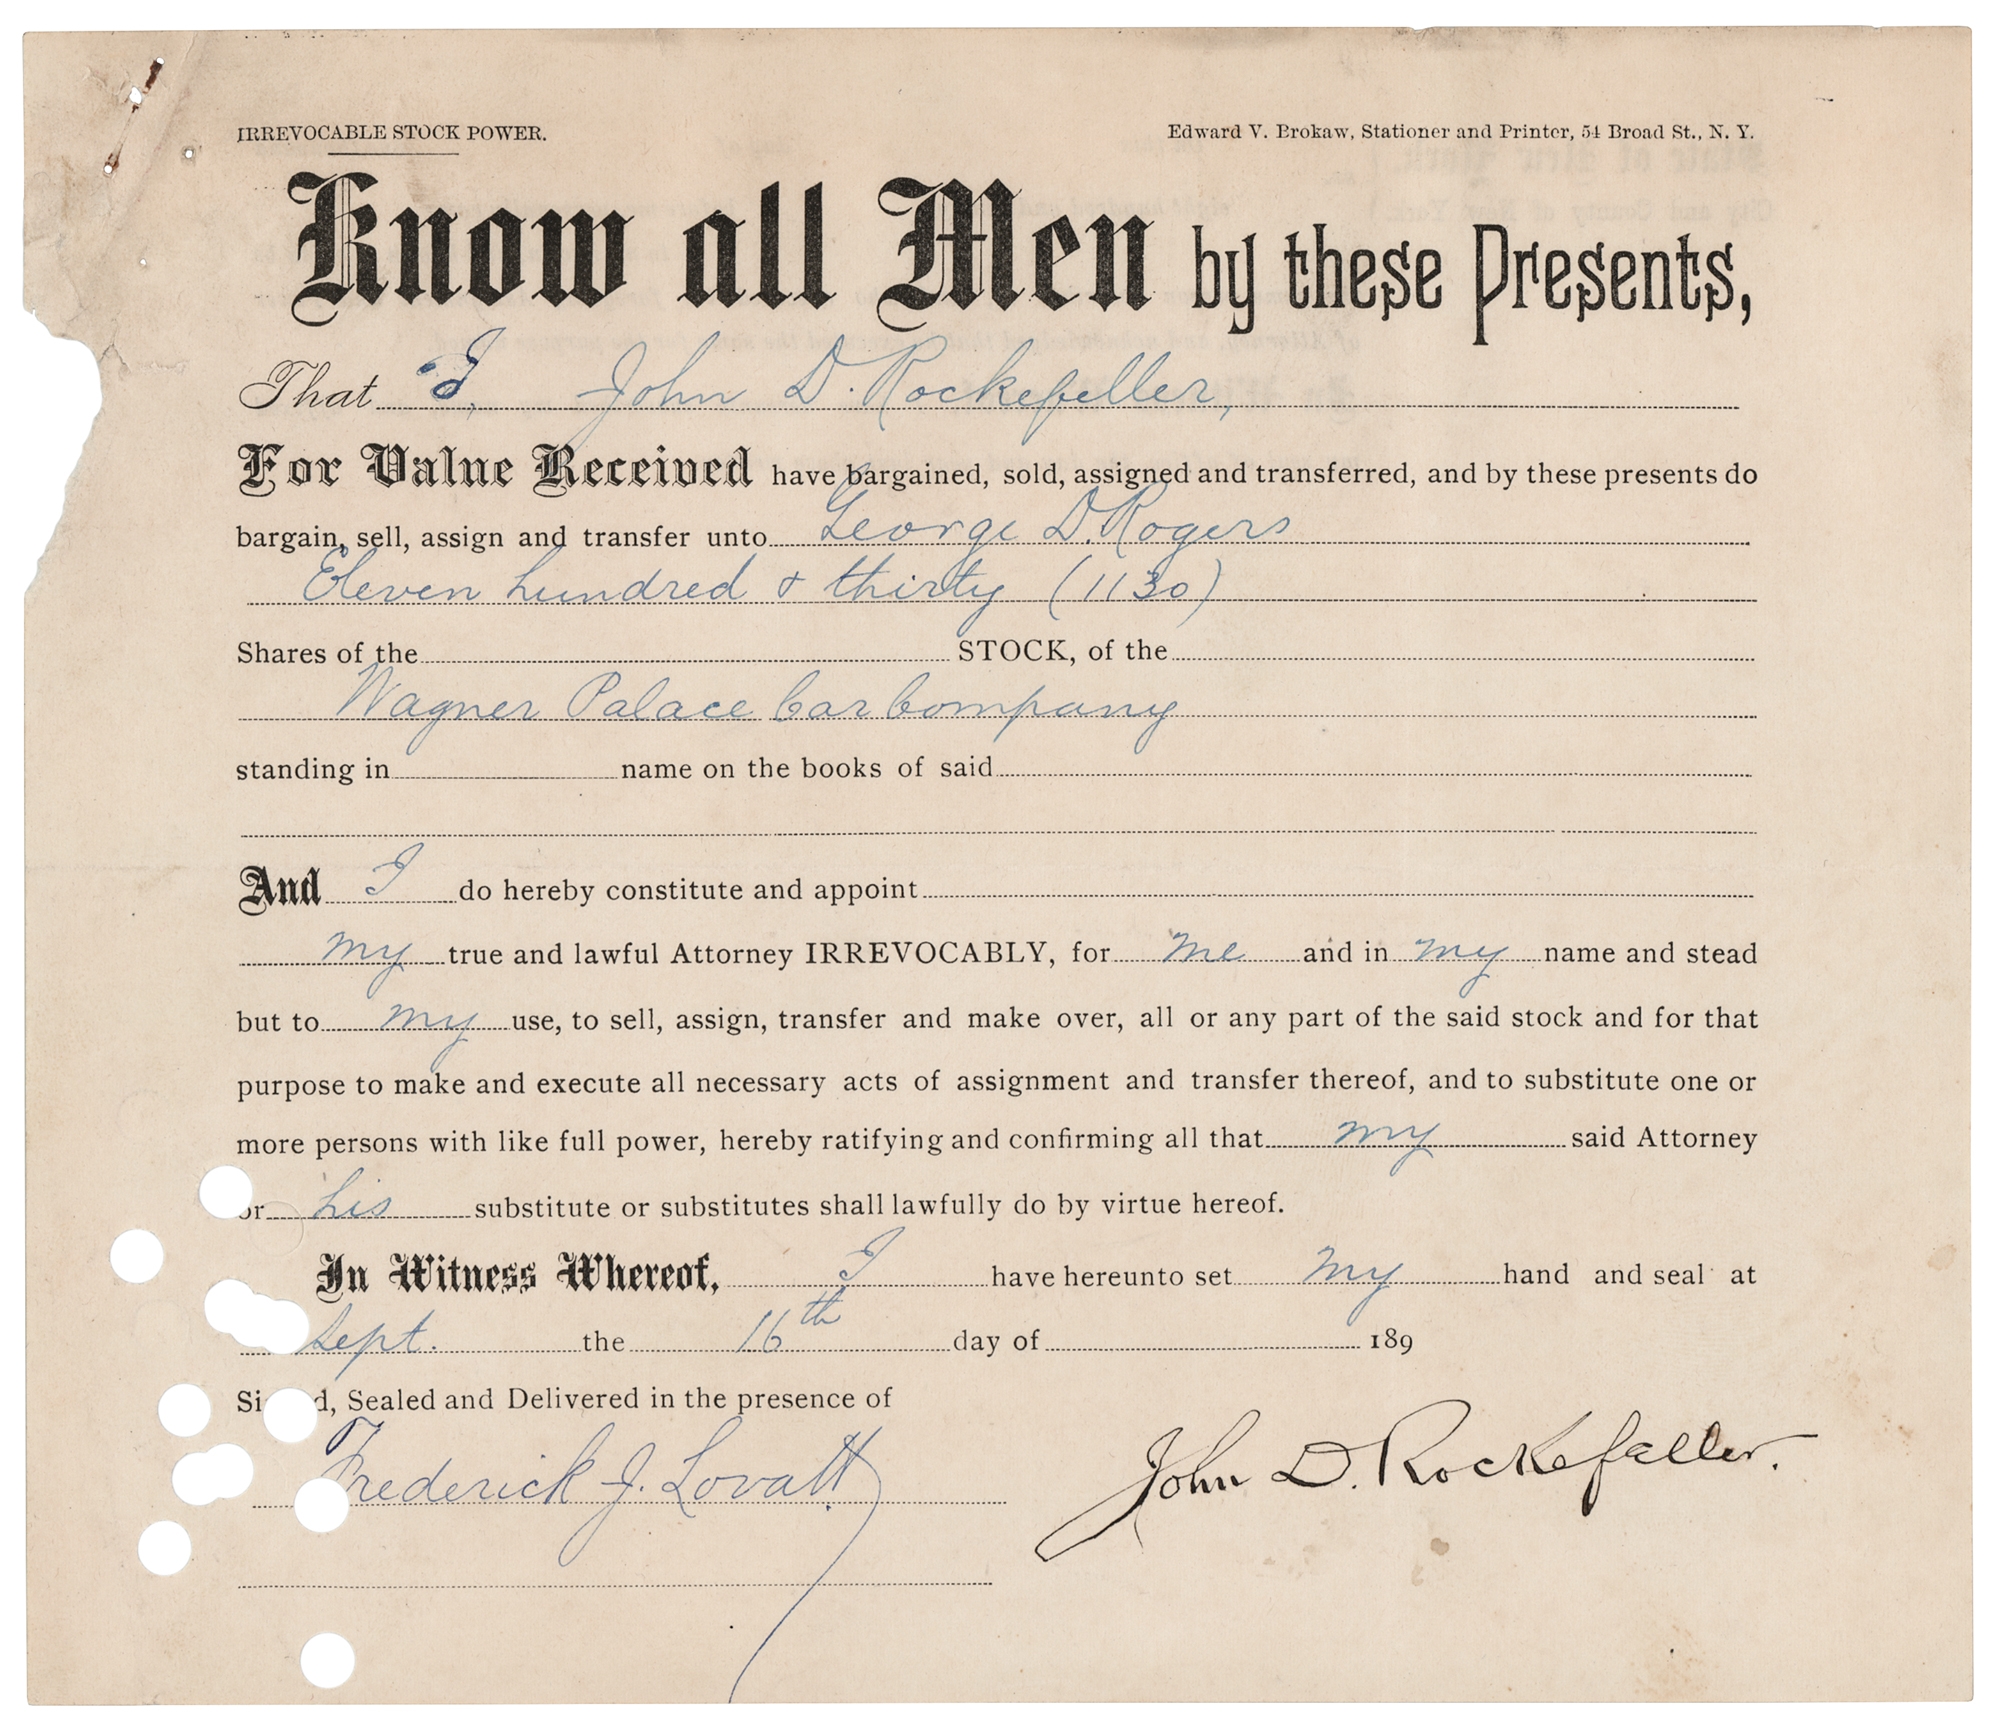 IRREVOCABLE STOCK POWER. Edward V. Brokaw, Stationer and Printer, 54 Broad St., N. Y.
Know all Men by these Presents,
That I, John D. Rockefeller,
For Value Received have bargained, sold, assigned and transferred, and by these presents do
bargain, sell, assign and transfer unto George D. Rogers
Eleven hundred & thirty (1130)
Shares of the STOCK, of the
Wagner Palace Car Company
standing in name on the books of said
And I do hereby constitute and appoint
my true and lawful Attorney IRREVOCABLY, for me and in my name and stead
but to my use, to sell, assign, transfer and make over, all or any part of the said stock and for that
purpose to make and execute all necessary acts of assignment and transfer thereof, and to substitute one or
more persons with like full power, hereby ratifying and confirming all that my said Attorney
or his substitute or substitutes shall lawfully do by virtue hereof.
In Witness Whereof, I have hereunto set my hand and seal at
Sept. the 16th day of 189
Si d, Sealed and Delivered in the presence of
Frederick J. Lovatt John D. Rockefeller.